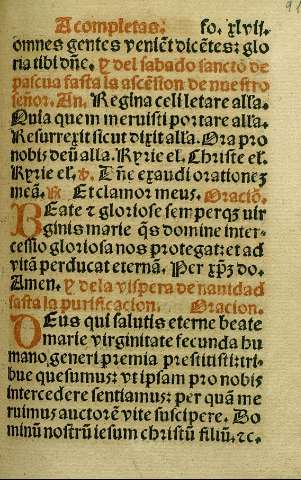 A completas. fo. xlvij.
omnes gentes veniẽt dicẽtes: glo
ria tibi dñe. y del sabado sancto de
pascua fasta la ascẽsion de nuestro
señor. An. Regina celi letare alľa.
Quia quem meruisti portare alľa.
Resurrexit sicut dixit alľa. Ora pro
nobis deũ alľa. Kyrie el. Christe el.
Kyrie el. ℣. Dñe exaudi orationeʒ
meã. ℟. Et clamor meus. Oracio.
BEate ⁊ gloriose semperqʒ vir
ginis marie q̃s domine inter-
cessio gloriosa nos protegat: et ad
vitã perducat eternã. Per xp̃ʒ do.
Amen. y de la vispera de nauidad
fasta la purificacion. Oracion.
DEus qui salutis eterne beate
marie virginitate fecunda hu
mano generi premia prestitisti: tri-
bue quesumus: vt ipsam pro nobis
intercedere sentiamus: per quã me
ruimus auctorẽ vite suscipere. Do
minũ nostrũ iesum christũ filiũ. ⁊c.